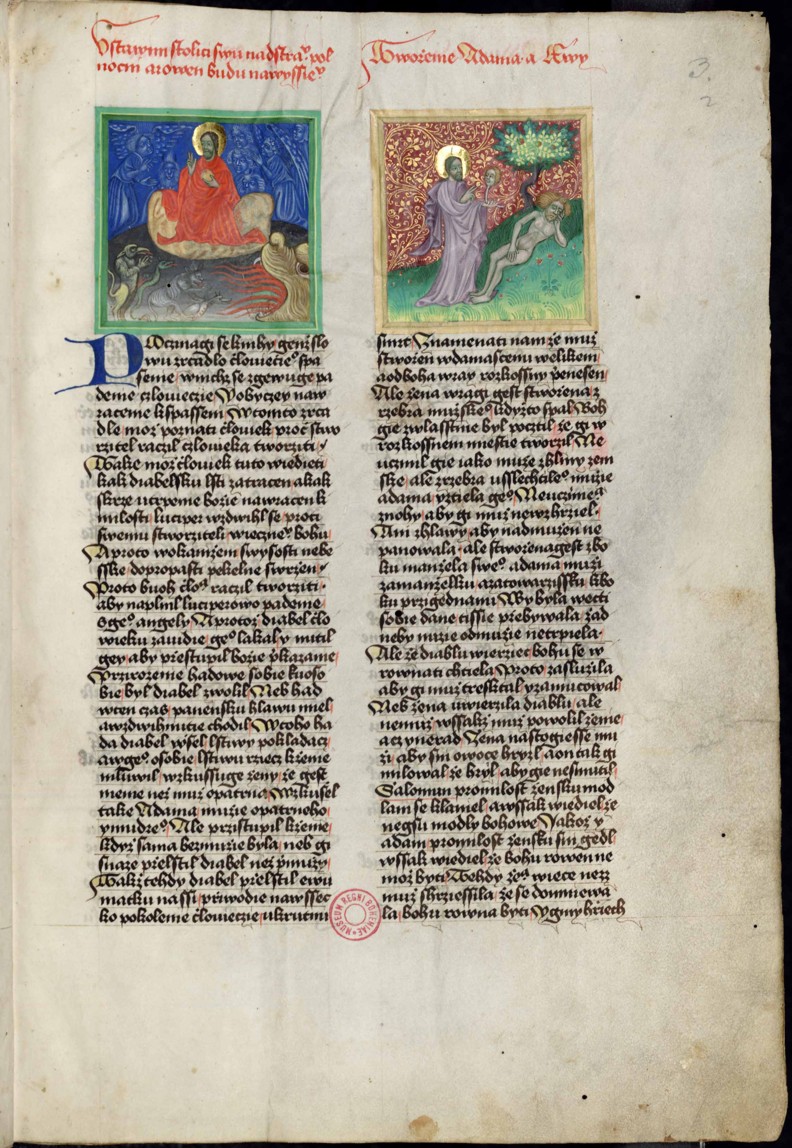 Vstawim stolici swu nadstraᵘ pol
nocni arowen budu naywyssieᵘ
Stworzenie Adama a Ewy
3.
2
Poczinagi se knihy genž slo
wu zrcadlo człowiecieᵒ spa
senie wnichz se zgewuge pa
denie człowieczie Yobyczey naw
raceme kspassenì Wtomto zrca
dle moż poznati człowiek procz stwo
rzitel raczil człowieka tworziti
Take moż człowiek tuto wiedieti
kak diabelsku lsti zatracen akak
skrze utrpenie bożie nawracen k
milosti luciper wzdwihl se proti
swemu stworziteli wiecznᵉ bohu
Aproto wokamżem swysosti nebe
sske dopropasti pekelne swrżen
Proto buoh cżloᵃ raczil tworziti
aby naplnil luciperowo padenie
ogeᵒ angely Aprotoż diabel cżlo
wieku zawidie geᵒ lakal y nutil
gey aby przestupil bożie p̃kazanie
Przirozenie hadowe sobie kuoso
bie byl diabel zwolil Neb had
wten czas panensku hlawu miel
awzdwihnutie chodil Wtoho ha
da diabel wssel lstiwy pokladacz
awgeᵒ osobie lstiwu rzecz kżenie
mluwil wzkussuge żeny że gest
menie neż muż opatrna Wzkusel
take Adama muże opatrneho
ymudreᵒ Ale przistupil kżenie
kdyż sama bezmuże byla neb gi
snaze przelstil diabel neż p̃mużi
Takż tehdy diabel przelstil ewu
matku nassi prziwodie nawssec
ko pokolenie cżlowieczie ukrutnu
smrt Znamenati nam że muż
stworzen wdamascenu welikem
aodboha wray rozkossny p̃enesen
Ale żena wragi gest stworzena z
rzebra mużskeᵒ kdyżto spal Boh
gie zwlasstnie byl pocztil że gi w
rozkossnem miestie tworzil Ne
ucinil gie iako muże zhliny zem
ske ale zrzebra usslechtileᵒ muże
adama yztiela geᵒ Neucziniᵉᵃ
znohy aby gi muż newzhrziel
Ani zhlawy aby nadmużen ne
panowala ale stworzenagest zbo
ku manzela sweᵒ adama muzi
zamanżelku azatowarzissku kbo
ku prziegednani Wby byla wcti
sobie dane tissie przebywala żad
neby nuze odmuże netrpiela
Ale że diablu wierziec bohu se w
rownati chtiela Proto zaslużila
aby gi muż tresktal yzarmucowal
Neb żena uwierzila diablu ale
nemuż wssakż muż powolil żenie
aczynerad Żena nastogiesse mu
żi aby sni owoce hryzl aon tak gi
milowal że hryzl aby gie nesmutil
Salomun promilost żensku mod
lam se klaniel awssak wiediel że
negsu modly bohowe Jakoż y
adam promilost żensku sni gedl
wssak wiediel że bohu rowen ne
moż byti Tehdy żeᵃ wiece neż
muż shrziessila że se domniewa
la bohu rowna byti Ygmy hrziech
MUSEUM REGNI BOHEMIAE